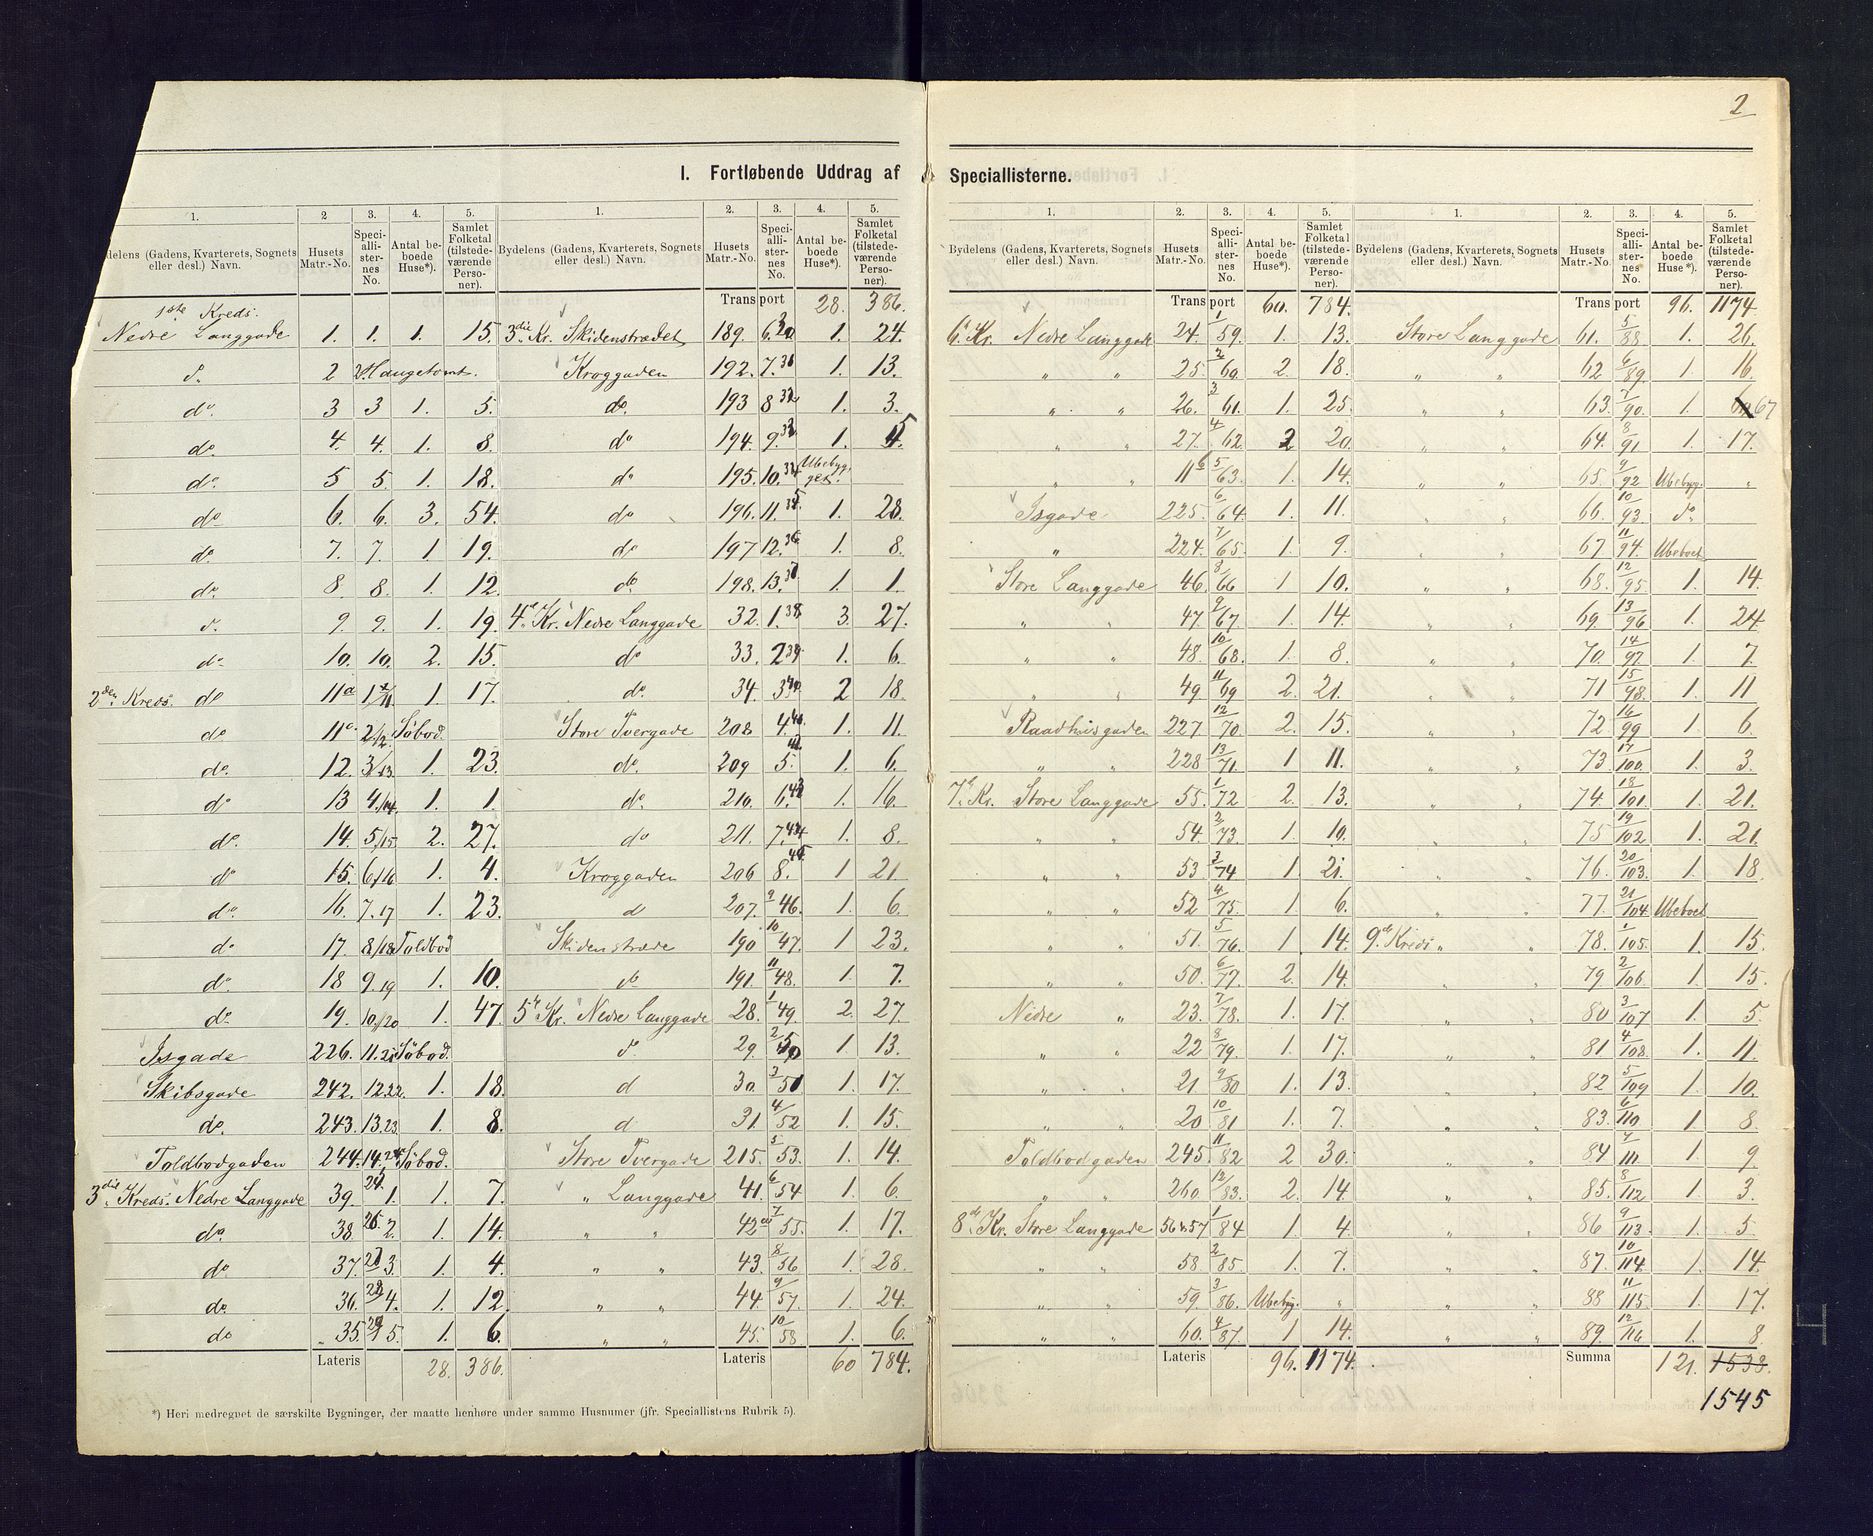 2
I. Fortløbende Uddrag af Speciallisterne.
1. 2 3. 4. 5. 1. 2. 3. 4. 5.
delens (Gadens, Kvarterets, Sognets eller desl.) Navn. Husets Matr.-No. Speciallisternes No. Antal beboede Huse*). Samlet Folketal (tilstedeværende Personer). Bydelens (Gadens, Kvarterets, Sognets eller desl.) Navn. Husets Matr.-No. Speciallisternes No. Antal beboede Huse*). Samlet Folketal (tilstedeværende Personer).
1ste Kreds.
Nedre Langgade 1. 1. 1. 15.
do. 2 2. Haugetomt.
do. 3 3 1. 5.
do. 4. 4. 1. 8.
do. 5 5. 1. 18.
do 6. 6. 3. 54.
do. 7. 7. 1. 19.
do. 8. 8. 1. 12.
do. 9. 9. 1. 19.
do. 10. 10. 2. 15.
2den Kreds. do 11a 1/11 1. 17.
do 11 2/12. Söbod.
do. 12. 3/13. 1. 23.
do 13 4/14. 1. 1.
do. 14. 5/15 2. 27.
do 15. 6/16 1. 4.
do. 16. 7.17 1. 23.
do 17. 8/18 Toldbod
do. 18 9.19 1. 10.
do. 19. 10/20 1. 47.
Isgade 226. 11.21 Söbod.
Skibsgade 242. 12.22. 1. 18.
do. 243. 13.23. 1. 8.
Toldbodgaden 244. 14.24 Söbod.
3die Kreds. Nedre Langgade 39. 1. 1. 7.
do. 38. 26. 2. 1. 14.
do. 37. 27 3. 1. 4.
do 36. 28 4. 1. 12.
do 35. 29 5. 1. 6.
Lateris 28. 386.
Transport 28. 386.
3die Kr. Skidenstrædet 189. 6.30 1. 24.
Kroggaden 192. 7.31 1. 13.
do. 193 8 32 1. 3.
do 194. 9.33 1. 5.
do 195. 10.34 Ubebygget.
do 196. 11.35. 1. 28.
do 197 12.36 1. 8.
do. 198. 13.37 1. 1.
4de Kr. Nedre Langgade 32. 1.38 3. 27.
do 33. 2 39. 1. 6.
do. 34. 3 40. 2 18.
Store Tvergade 208 4.41 1. 11.
do. 209 5. 42 1. 6.
do. 210. 6.43 1. 16.
do 211. 7.44 1. 8.
Kroggaden 206 8. 45 1 21
d 207. 9 46. 1. 6.
Skidenstræde 190 10/47. 1 23.
do 191. 11/48. 1. 7.
5te Kr. Nedre Langgade 28. 1/49. 2. 27.
d. 29. 2/50 1. 13.
d 30. 3/51 1. 17.
d 31. 4/52 1. 15.
Store Tvergade 215. 5/53. 1. 14.
„ Langgade 41. 6/54 1. 6.
„ „ 42 7/55. 1. 17.
„ „ 43. 8/56 1. 28.
„ „ 44. 9/57. 1. 24.
„ „ 45. 10/58 1. 6.
Lateris 60 784.
*) Heri medregnet de særskilte Bygninger, der maatte henhøre under samme Husnumer (jfr. Speciallistens Rubrik 5).
1. 2. 3. 4. 5. 1. 2. 3. 4. 5.
Bydelens (Gadens, Kvarterets, Sognets eller desl.) Navn. Husets Matr.-No. Speciallisternes No. Antal beboede Huse*). Samlet Folketal (tilstedeværende Personer). Bydelens (Gadens, Kvarterets, Sognets eller desl.) Navn. Husets Matr.-No. Speciallisternes No. Antal beboede Huse*). Samlet Folketal (tilstedeværende Personer).
Transport 60. 784.
6te Kr. Nedre Langgade 24. 1/59. 1. 13.
„ „ 25. 2/60. 2. 18.
„ „ 26. 3/61. 1. 25.
„ „ 27. 4/62. 2 20.
„ „ 11b 5/63. 1. 14.
Isgade 225. 6/64. 1. 11.
„ 224. 7/65. 1. 9.
Store Langgade 46. 8/66 1 10.
„ „ 47. 9/67 1. 14.
„ „ 48. 10/68. 1. 8.
„ „ 49. 11/69 2. 21.
Raadhusgaden 227. 12/70. 2. 15.
„ „ 228 13/71. 1 11.
7de Kr. Store Langgade 55. 1/72 2. 13.
„ „ 54. 2/73. 1. 10.
„ „ 53 3/74 1 21.
„ „ 52 4/75. 1 6.
„ „ 51. 5/76. 1 14.
„ „ 50. 6/77. 2. 14.
Nedre „ 23. 7/78. 1. 17.
„ „ 22 8/79. 1. 17.
„ „ 21 9/80 1. 13.
„ „ 20 10/81 1. 7.
Toldbodgaden 245. 11/82 2 30.
„ „ 260. 12/83. 2. 14.
8de Kr. Store Langgade 56 & 57 1/84 1 4.
„ „ 58 2/85. 1. 7.
„ „ 59. 3/86. Ubebyg. „
„ „ 60. 4/87. 1 14.
Lateris 96. 1174.
Transport 96. 1174.
Store Langgade 61. 5/88 1. 26.
„ „ 62 6/89. 1. 16.
„ „ 63. 7/90. 1. 67
„ „ 64. 8/91 1. 17.
„ „ 65. 9/92 Ubebyg. „
„ „ 66. 10/93. do.
„ „ 67. 11/94. Ubeboet
„ „ 68. 12/95 1. 14.
„ „ 69. 13/96 1. 24
„ „ 70. 14/97 1. 7.
„ „ 71 15/98. 1. 11
„ „ 72. 16/99 1. 6.
„ „ 73. 17/100. 1. 3.
„ „ 74. 18/101 1. 21.
„ „ 75 19/102 1. 21.
„ „ 76. 20/103. 1. 18.
„ „ 77. 21/104. Ubeboet
9de Kreds „ „ 78. 1/105. 1. 15.
„ „ 79 2/106 1. 15.
„ „ 80 3/107 1. 5.
„ „ 81 4/108. 1. 11.
„ „ 82 5/109 1. 10.
„ „ 83. 6/110 1. 8.
„ „ 84 7/111. 1. 9
„ „ 85. 8/112 1. 3.
„ „ 86 9/113. 1. 5
„ „ 87. 10/114. 1. 14
„ „ 88 11/115. 1. 17.
„ „ 89. 12/116 1. 8.
Summa 121. 1538.
1545